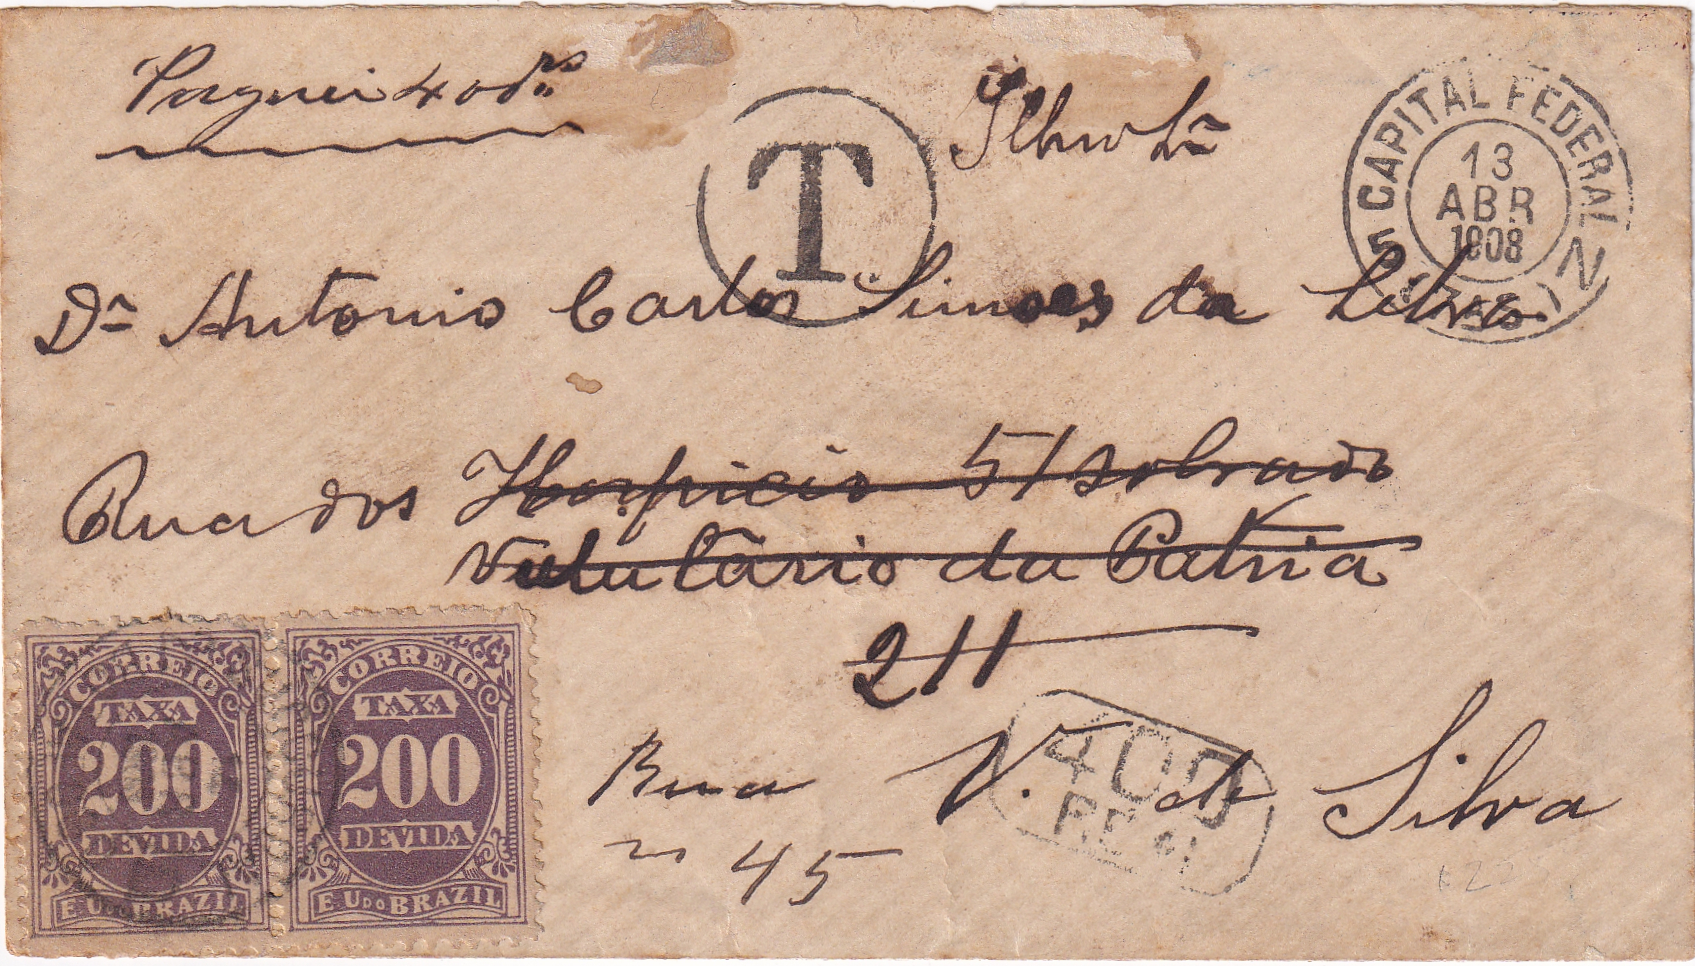 Paguei 400rs
T
Illmo Sr
CAPITAL FEDERAL
13
ABR
1908
5 N
Dr Antonio Carlos Simoes da Silva
Rua dos Hospicio 51 sobrado
Volutario da Patria
211
Rua V. de Silva
n 45
400
REIS
CORREIO
TAXA
200
DEVIDA
E. U. DO BRAZIL
CORREIO
TAXA
200
DEVIDA
E. U. DO BRAZIL